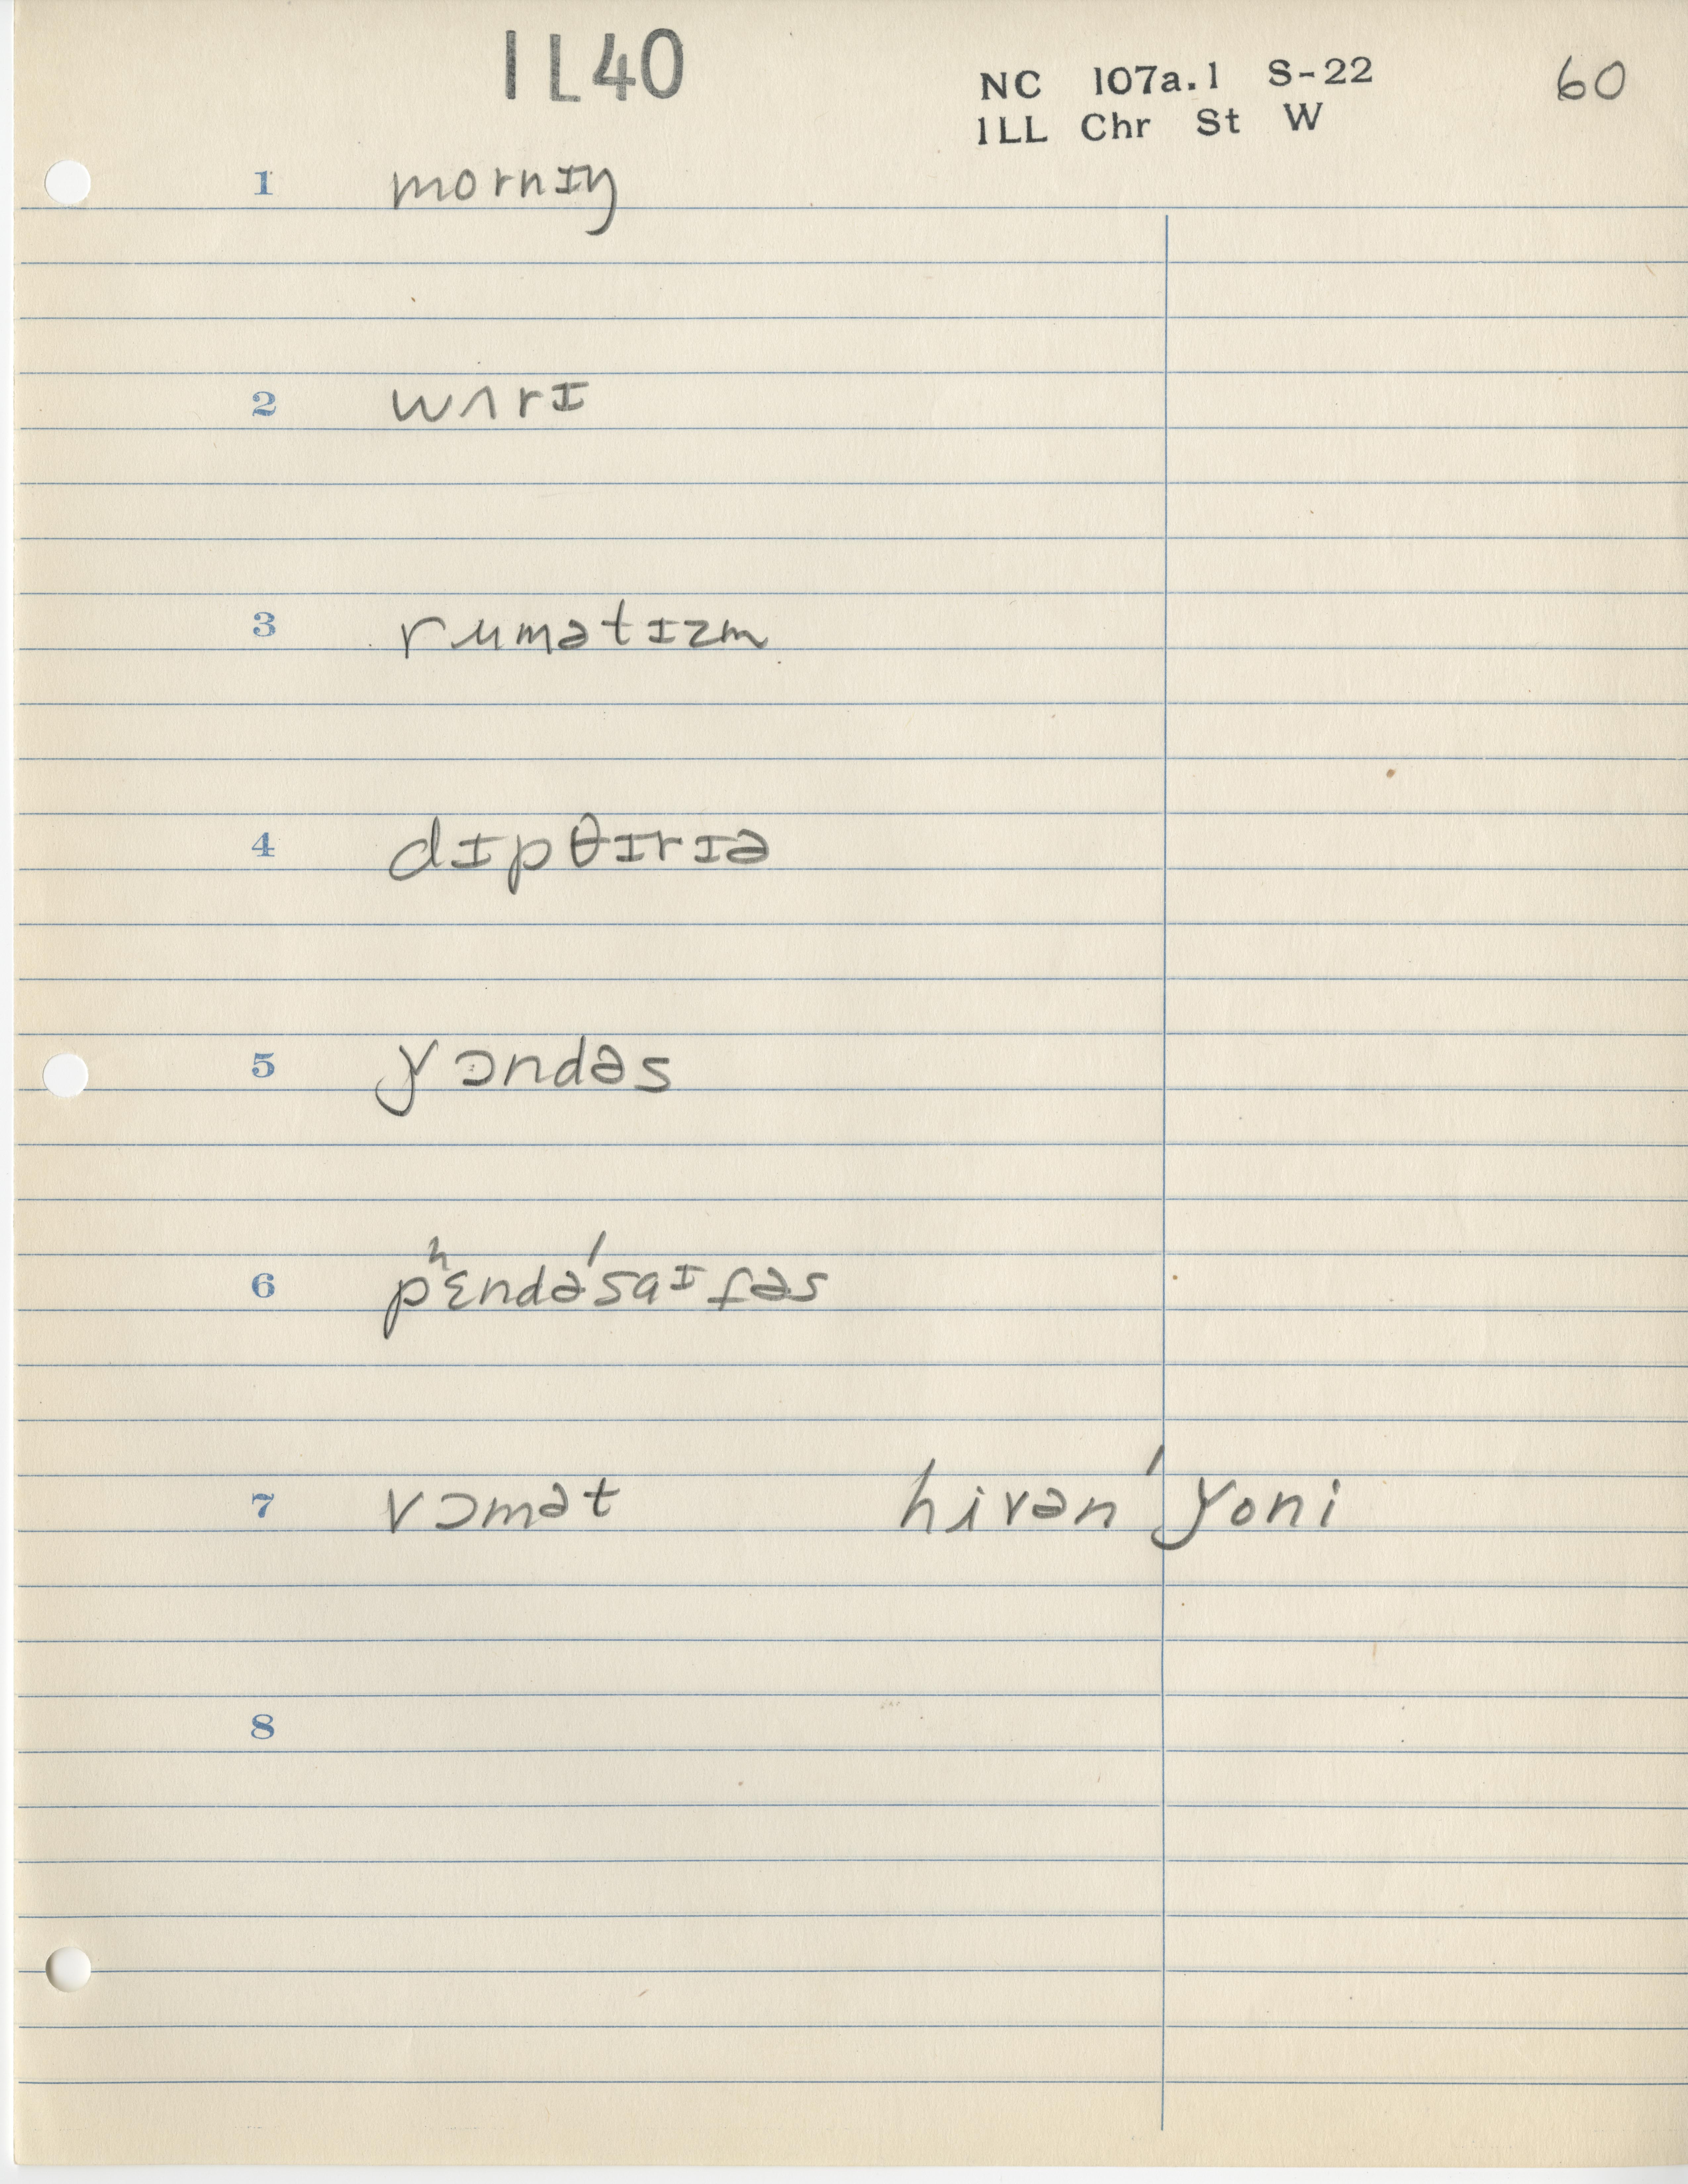 1L40
NC 107a.1 S-22 60
1LL Chr St W
1 mornɪŋ
2 wʌrɪ
3 rumətɪzm
4 dɪpθɪrɪə
5 ɣɔndəs
6 pʰɛndə'saɪfəs
7 vɔmət hivən'ɣoni
8